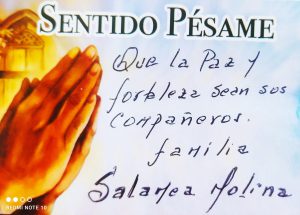 SENTIDO PÉSAME
Que la Paz y
fortaleza sean sus
compañeros.
familia
Salamea Molina
REDMI NOTE 10